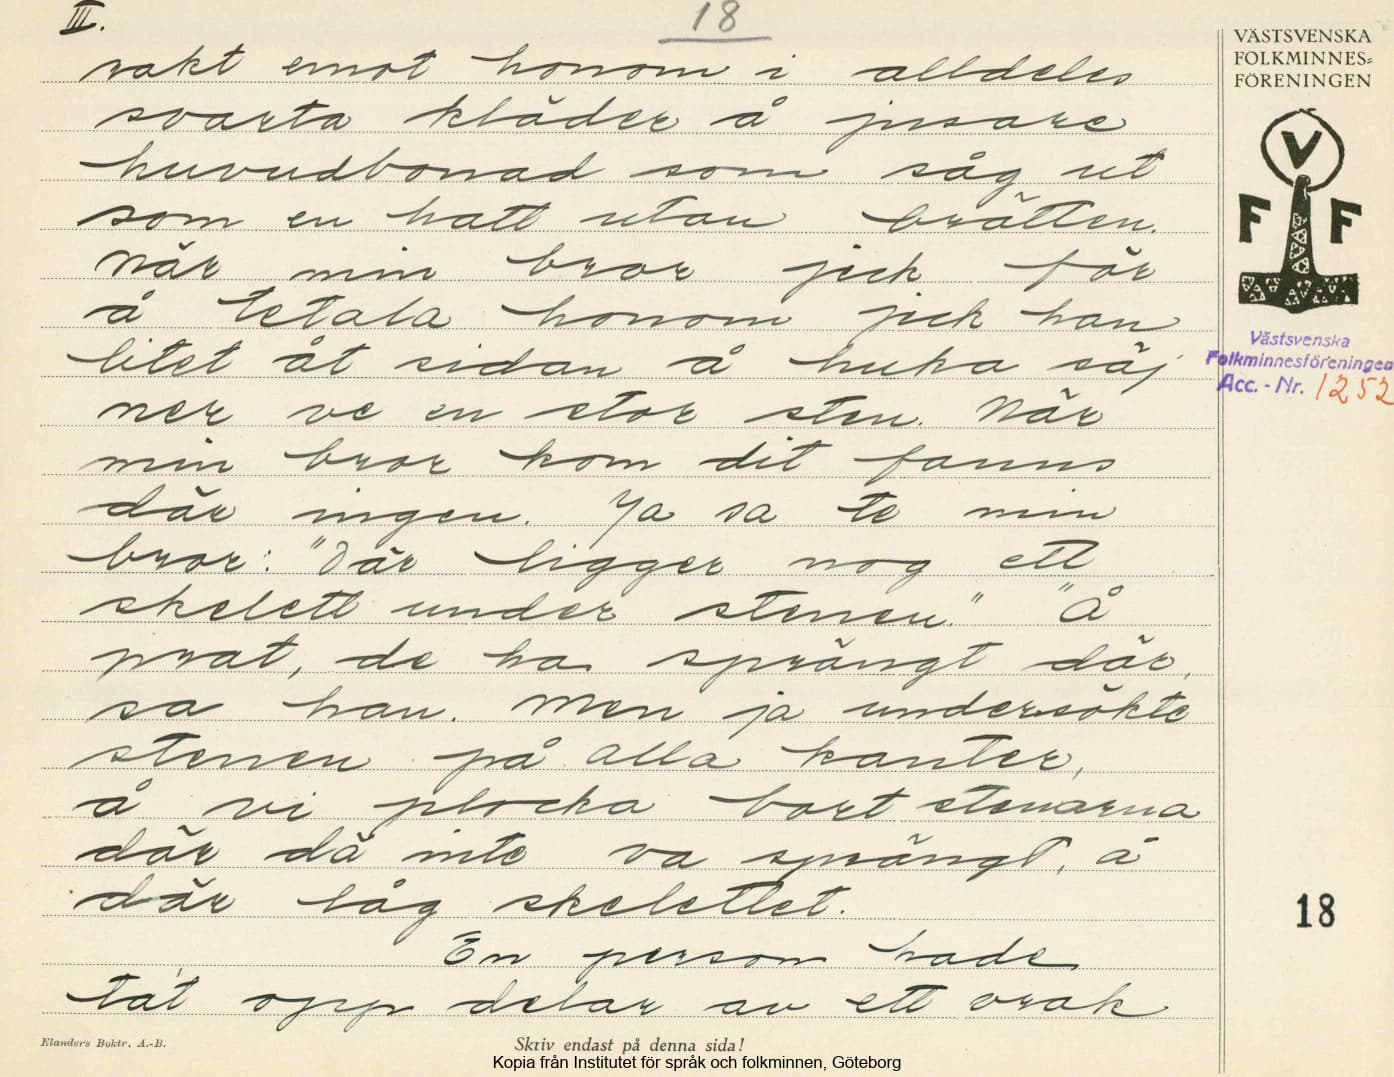 III.
18
rakt emot honom i alldeles
svarta kläder å pusare
huvudbonad som såg ut
som en hatt utan brätten.
När min bror jick för
å tetala honom jick han
litet åt sidan å huka säj
ner ve en stor sten. När
min bror kom dit fanns
där ingen. Ja sa te min
bror: "Där ligger nog ett
skelett under stenen." "Å
prat, de ha sprängt där,
sa han. Men ja undersökte
stenen på alla kanter,
å vi plocka bort stenarna
där dä inte va sprängt, å
där låg skelettet.
En person hade
tat opp delar av ett vrak
VÄSTSVENSKA
FOLKMINNES=
FÖRENINGEN
V
F F
Västsvenska
Folkminnesföreningen
Acc. - Nr. 1252
18
Elanders Boktr. A.-B.
Skriv endast på denna sida!
Kopia från Institutet för språk och folkminnen, Göteborg